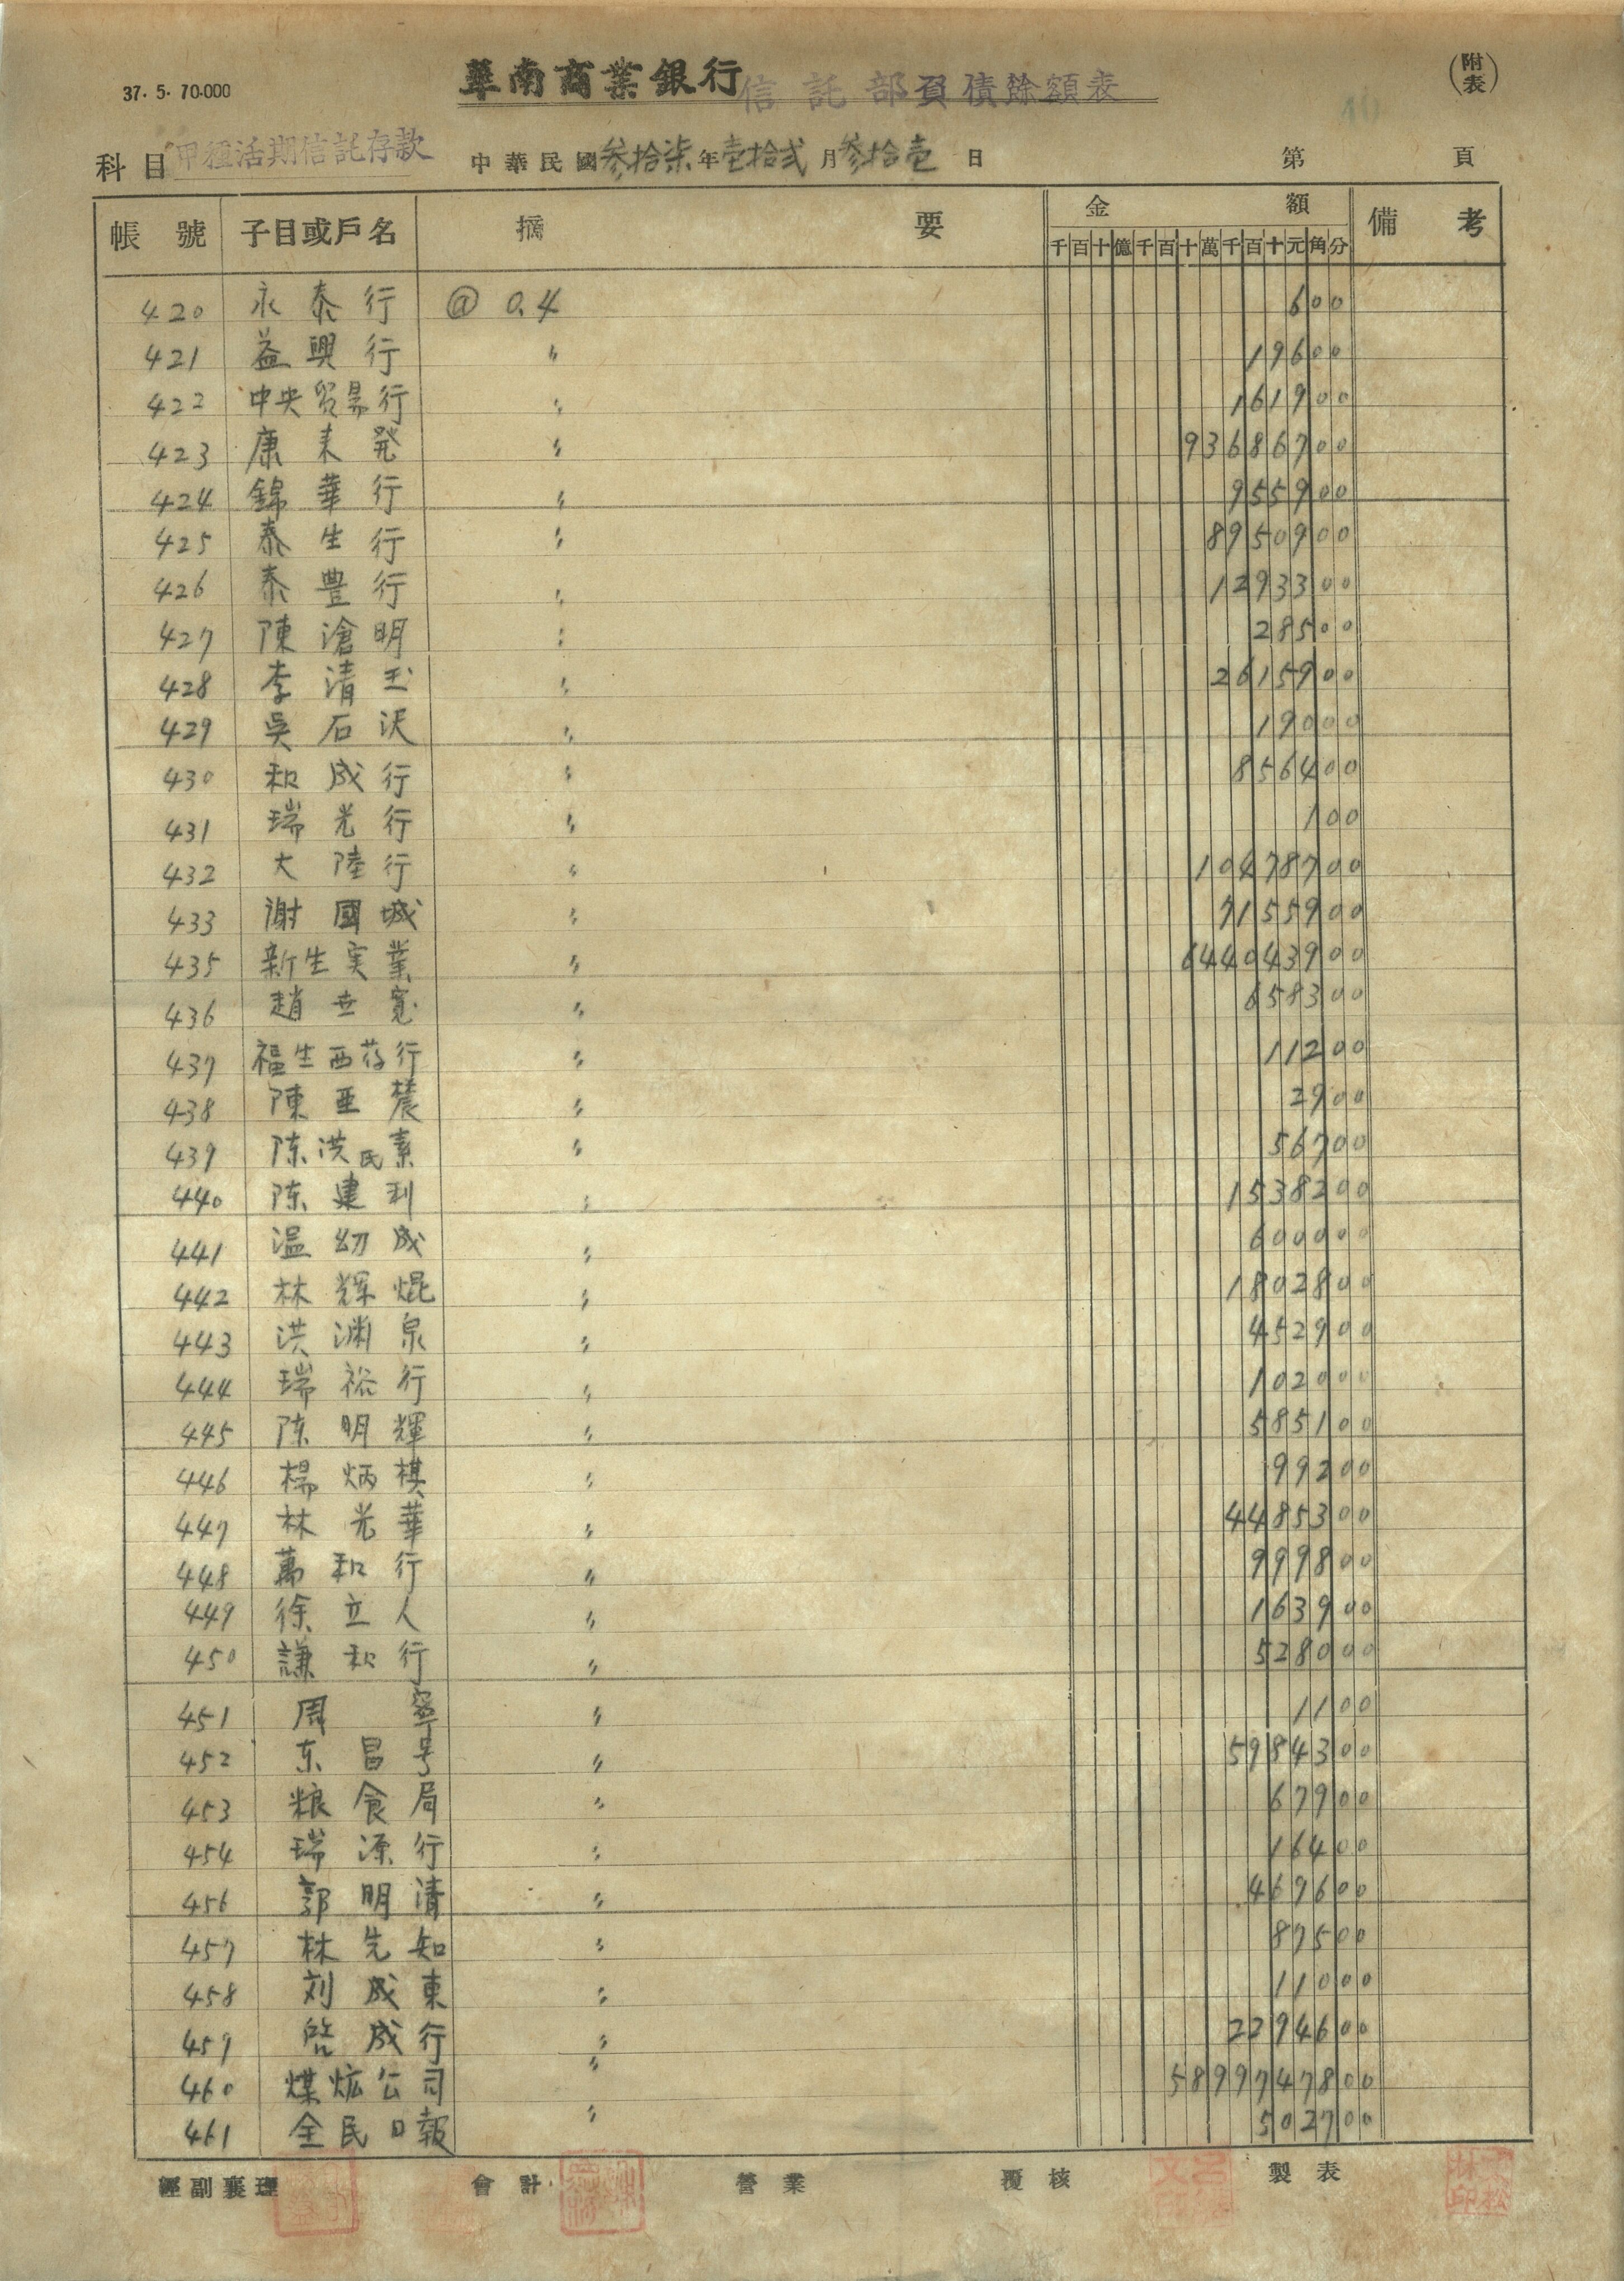 37. 5. 70.000
華南商業銀行信託部負債餘額表
(附表)
10
科目 甲種活期信託存款 中華民國叁拾柒年壹拾弍月叁拾壹日 第 頁
帳號 子目或戶名 摘要 金額 備考
千百十億千百十萬千百十元角分
420 永泰行 @ 0.4 600
421 益興行 〃 19600
422 中央贸易行 〃 161900
423 康来発 〃 93686700
424 錦華行 〃 955900
425 泰生行 〃 8950900
426 泰豊行 〃 1293300
427 陳滄明 〃 28500
428 李清玉 〃 2615900
429 吳石沢 〃 19000
430 和成行 〃 856400
431 瑞光行 〃 100
432 大陸行 〃 10478700
433 謝國城 〃 7155900
435 新生実業 〃 644043900
436 趙世寬 〃 658300
437 福生西药行 〃 11200
438 陳亜農 〃 2900
439 陈洪民素 〃 56700
440 陈建利 〃 1538200
441 温幼成 〃 600000
442 林辉焜 〃 1802800
443 洪渊泉 〃 452900
444 瑞裕行 〃 102000
445 陈明輝 〃 585100
446 楊炳棋 〃 99200
447 林光華 〃 4485300
448 萬和行 〃 999800
449 徐立人 〃 163900
450 謙和行 〃 528000
451 周寧 〃 1100
452 东昌号 〃 5984300
453 粮食局 〃 67900
454 瑞源行 〃 16400
456 郭明清 〃 469600
457 林先知 〃 87500
458 刘成東 〃 11000
459 啓成行 〃 2294600
460 煤炕公司 〃 5899747800
461 全民日報 〃 502700
經副襄理 會計 營業 覆核 製表